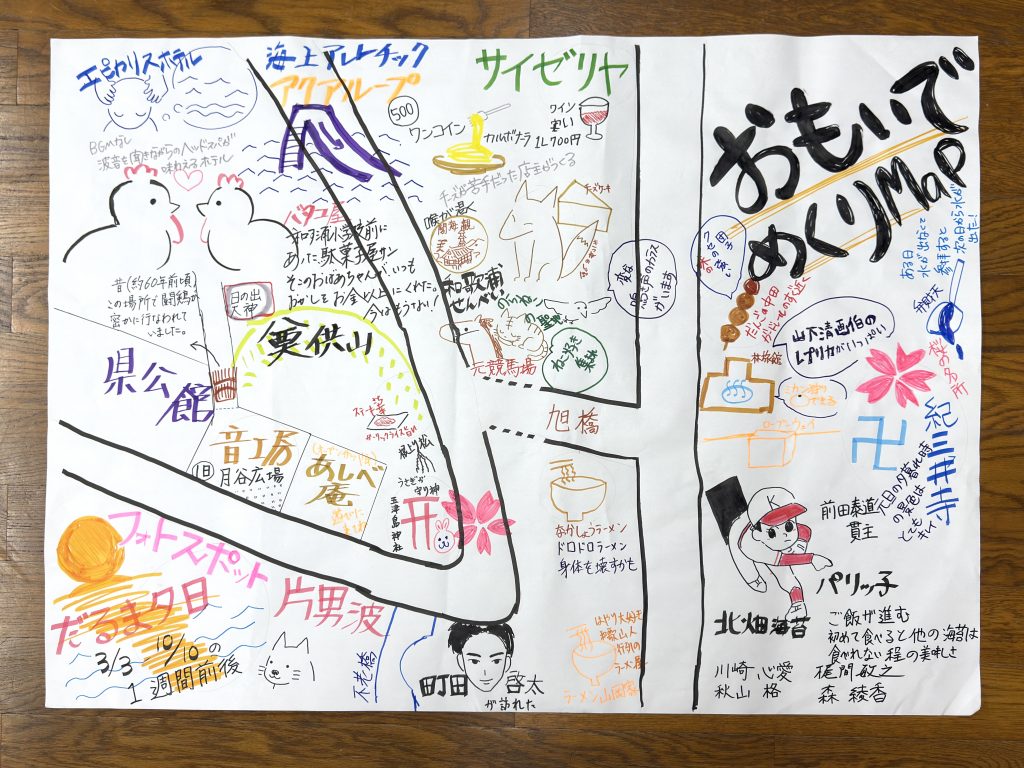 エピャリスホテル
BGMなし
波音を聞きながらのヘッドスパが
味わえるホテル
海上アスレチック
アクアループ
500
ワンコイン
カルボナーラ
サイゼリヤ
ワイン
安い
1L 700円
おもいで
めぐりMap
ある日
水が出なくて
参拝すると
次の日から水が
出た!
昔(約60年前頃)
この場所で闘鶏が
密かに行なわれて
いました。
和歌浦小学校前に
あった駄菓子屋サン
そのおばあちゃんがいつも
おかしをお金以上にくれた。
今はもうない!
チーズが苦手だった店主がつくる
チーズケーキ
和歌浦
せんべい
元競馬場
日の出
大神
奠供山
県公館
音工房
旧
月谷広場
あしべ
庵
ステーキ
ガーリックライス
根上り松
うさぎが
守り神
玉津島神社
旭橋
なかしょうラーメン
ドロドロラーメン
身体を壊すかも
ラーメン山岡家
山下清画伯の
レプリカがいっぱい
旅館
桜の名所
紀三井寺
元日の夕暮れ時
の景色は
とても
キレイ
前田泰道
貫主
フォトスポット
だるま夕日
3/3 10/10の
1週間前後
片男波
不老橋
町田 啓太
が訪れた
K
北畑海苔
パリッ子
ご飯が進む
初めて食べると他の海苔は
食べれない程の美味しさ
川崎 心愛
秋山 格
森 綾香